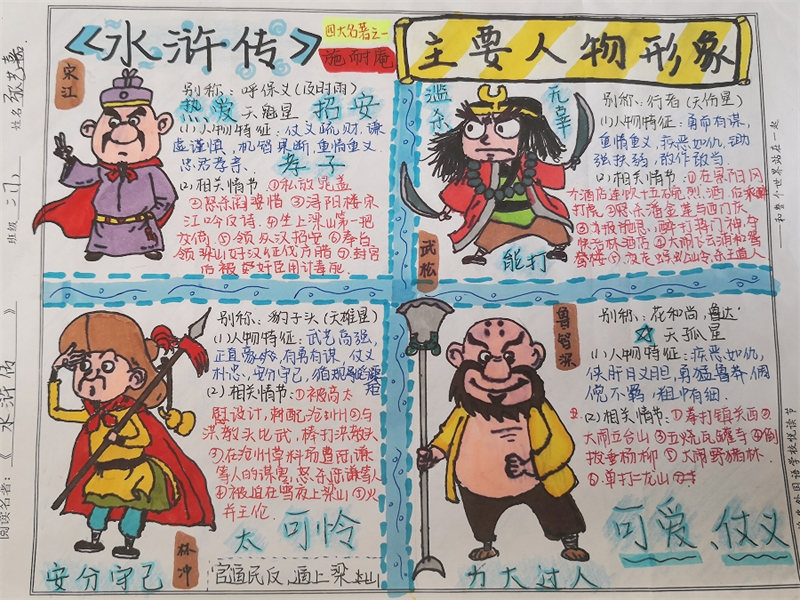 《水浒传》
四大名著之一
施耐庵
主要人物形象
宋江
别称：呼保义（及时雨）
天魁星
热爱 招安
(1)人物特征：仗义疏财、谦
虚谨慎，机警果断，重情重义，
忠君孝亲、
孝子
(2)相关情节①私放晁盖
②怒杀阎婆惜③浔阳楼宋
江吟反诗④坐上梁山第一把
交椅⑤领众汉招安⑥奉召
领梁山好汉征伐方腊⑦封官
后被奸臣用计毒死
滥杀
无辜
别称：行者（天伤星）
(1)人物特征：勇而有谋，
重情重义，疾恶如仇，
强扶弱，敢作敢当
(2)相关情节①在景阳冈
打虎②怒杀潘金莲与西门庆
醉打蒋门神，夺
快活林酒店④大闹飞云浦和鸳
鸯楼
武松
能打
别称：豹子头（天雄星）
(1)人物特征：武艺高强，
正直豪爽，有勇有谋，仗义
朴忠，安分守己，
(2)相关情节：①被高太
尉设计，刺配沧州②与
洪教头比武，棒打洪教头
③在沧州草料场曹听谦
等人的谋害，怒杀陆谦等人
④被迫在雪夜上梁山⑤火
并王伦
太可怜
林冲
安分守己
官逼民反，逼上梁山
鲁智深
别称：花和尚，鲁达
天孤星
(1)人物特征：疾恶如仇，
侠肝义胆，勇猛鲁莽，倜
傥不羁，粗中有细.
(2)相关情节：①拳打镇关西②
大闹五台山③火烧瓦罐寺④倒
拔垂杨柳⑤大闹野猪林
⑥单打二龙山
可爱、仗义
力大过人
姓名
班级 二(1)
阅读名著：《水浒传》
和整个世界站在一起